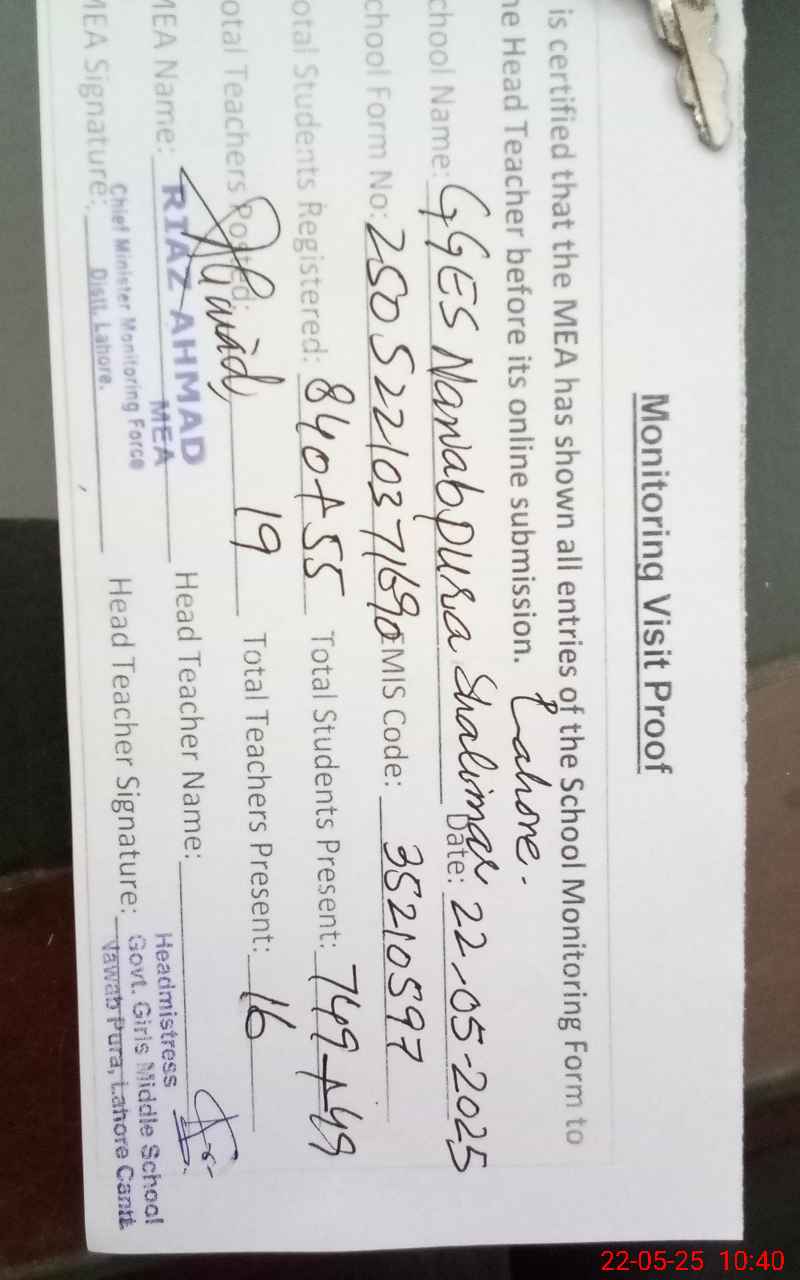 Monitoring Visit Proof
is certified that the MEA has shown all entries of the School Monitoring Form to
he Head Teacher before its online submission.
Lahore.
chool Name: GGES Nawabpura Shalimar Date: 22-05-2025
chool Form No: EMIS Code: 35210597
otal Students Registered: 840+55 Total Students Present: 749+49
otal Teachers Posted: 19 Total Teachers Present: 16
MEA Name: RIAZ AHMAD Head Teacher Name:
MEA
Chief Minister Monitoring Force
Distt. Lahore.
MEA Signature: Head Teacher Signature:
Headmistress
Govt. Girls Middle School
Nawab Pura, Lahore Cantt.
22-05-25 10:40